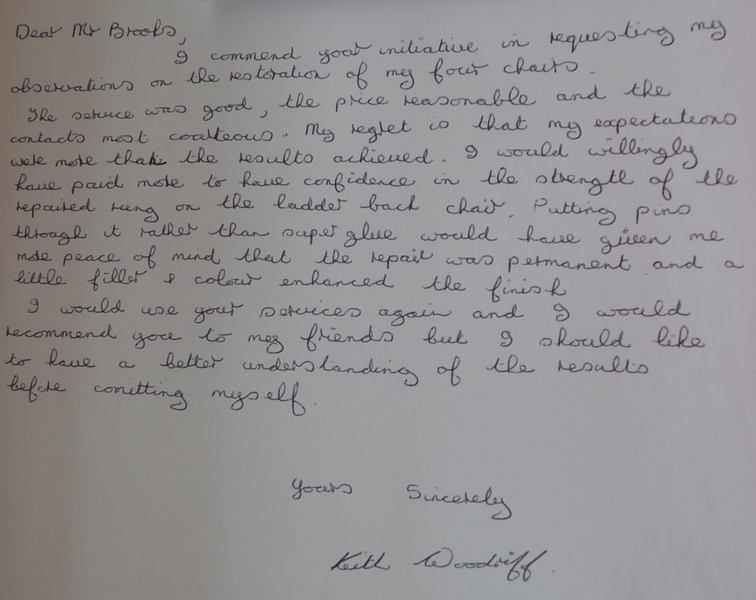 Dear Mr Brooks,
I commend your initiative in requesting my
observations on the restoration of my four chairs.
The service was good, the price reasonable and the
contacts most courteous. My regret is that my expectations
were more than the results achieved. I would willingly
have paid more to have confidence in the strength of the
repaired rung on the ladder back chair. Putting pins
through it rather than super glue would have given me
more peace of mind that the repair was permanent and a
little filler & colour enhanced the finish
I would use your services again and I would
recommend you to my friends but I should like
to have a better understanding of the results
before comitting myself.
Yours Sincerely
Keith Woodriff.